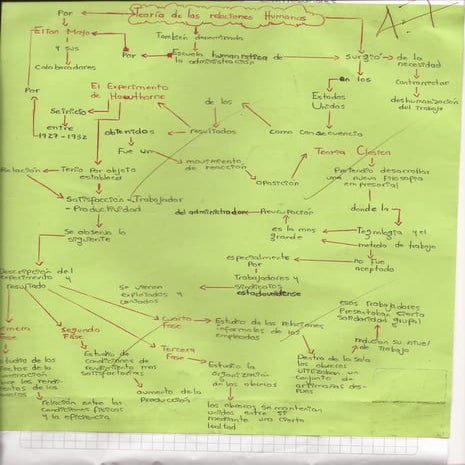 Por
Teoría de las relaciones Humanos
Elton Mayo
y sus
Colaboradores
Por
También denominada
Escuela humanística de
la administración
Por
Surgió
de la
necesidad
contrarrestar
deshumanización
del trabajo
en los
Estados
Unidos
El Experimento
de Hawthorne
Se inicio
entre
1927-1932
obtenidos
resultados
de los
como consecuencia
Fue un
movimiento
de reacción
oposición
Teoría Clásica
Pretendio desarrollar
una nueva filosofia
empresarial
donde la
Tegnologia y el
metodo de trabajo
no fue
aceptado
es la mas
grande
Preocupación
del administrador
especialmente
Por
Trabajadores y
sindicatos
estadounidense
se vieron
explotados y
cansados
Relación
Tenia Por objeto
establecer
Satisfaccion-Trabajador
-Productividad
Se observa lo
siguiente
Descripción del
experimento y
resultado
Primera
Fase
Estudio de los
efectos de la
Segunda
Fase
Estudio de
condiciones de
rendimiento mas
satisfactorias
relación entre las
condiciones fisicas
y la eficiencia
aumento de la
Producción
Cuarta
Fase
Estudio de las relaciones
informales de los
empleados
Tercera
Fase
Estudio la
organización
de los obreros
los obreros se mantenian
unidos entre si
mediante una cierta
lealtad
Dentro de la sala
los obreros
utilizaban un
conjunto de
artimañas des-
pues
reducian su nivel
de trabajo
esos trabajadores
Presentaban cierta
Solidaridad grupal